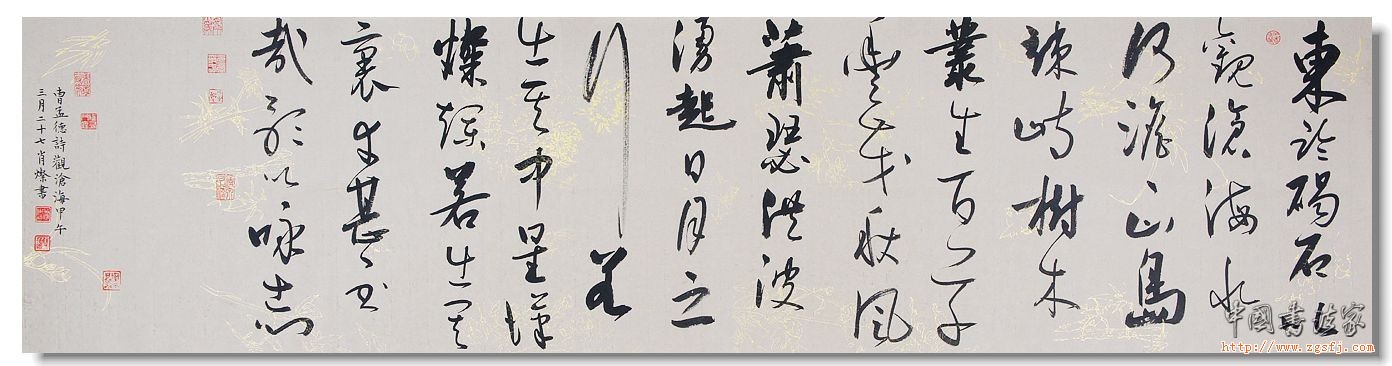 東臨碣石以
觀滄海水
何澹澹山島
竦峙樹木
叢生百草
豐茂秋風
蕭瑟洪波
湧起日月之
行若
出其中星漢
燦爛若出其
裏幸甚至
哉歌以詠志
曹孟德詩觀滄海甲午
三月二十七肖燦書
中國書法家
http://www.zgsfj.com